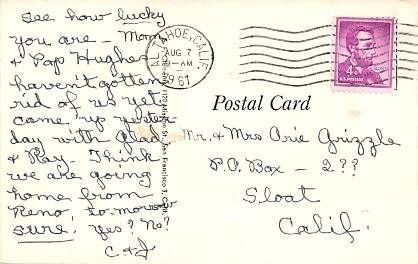 See how lucky
you are - Mom
& Pap Hughes
haven't gotten
rid of us yet
came up yester
day with Glad
& Ray - Think
we are going
home from
Reno to-morrow
sure! Yes? No?
C & J
TAHOE, CALIF.
AUG 7
-AM
1961
4¢
U.S. POSTAGE
Postal Card
Mr. & Mrs Orie Grizzle
P.O. Box - 2??
Sloat
Calif.
San Francisco 3, Calif.